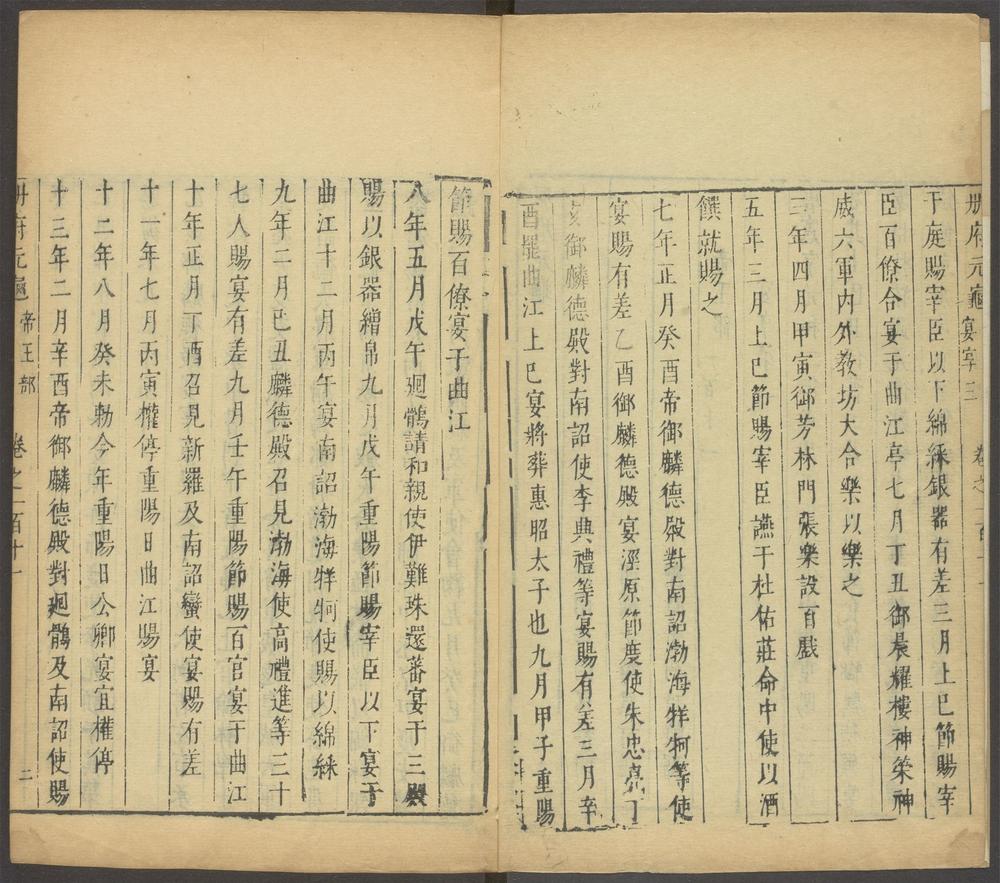 册府元龜 宴享三 卷之一百十一
于庭賜宰臣以下綿綵銀器有差三月上巳節賜宰
臣百僚合宴于曲江亭七月丁丑御晨耀樓神策神
威六軍內外教坊大合樂以樂之
三年四月甲寅御芳林門張樂設百戲
五年三月上巳節賜宰臣讌于杜佑莊命中使以酒
饌就賜之
七年正月癸酉帝御麟德殿對南詔渤海牂牁等使
宴賜有差乙酉御麟德殿宴涇原節度使朱忠亮丁
亥御麟德殿對南詔使李典禮等宴賜有差三月辛
酉罷曲江上巳宴將葬惠昭太子也九月甲子重陽
節賜百僚宴于曲江
八年五月戊午廻鶻請和親使伊難珠還蕃宴于三殿
賜以銀器繒帛九月戊午重陽節賜宰臣以下宴于
曲江十二月丙午宴南詔渤海牂牁使賜以綿綵
九年二月巳丑麟德殿召見渤海使高禮進等三十
七人賜宴有差九月壬午重陽節賜百官宴于曲江
十年正月丁酉召見新羅及南詔蠻使宴賜有差
十一年七月丙寅權停重陽日曲江賜宴
十二年八月癸未勅今年重陽日公卿宴宜權停
十三年二月辛酉帝御麟德殿對廻鶻及南詔使賜
册府元龜 帝王部 卷之一百十一 二